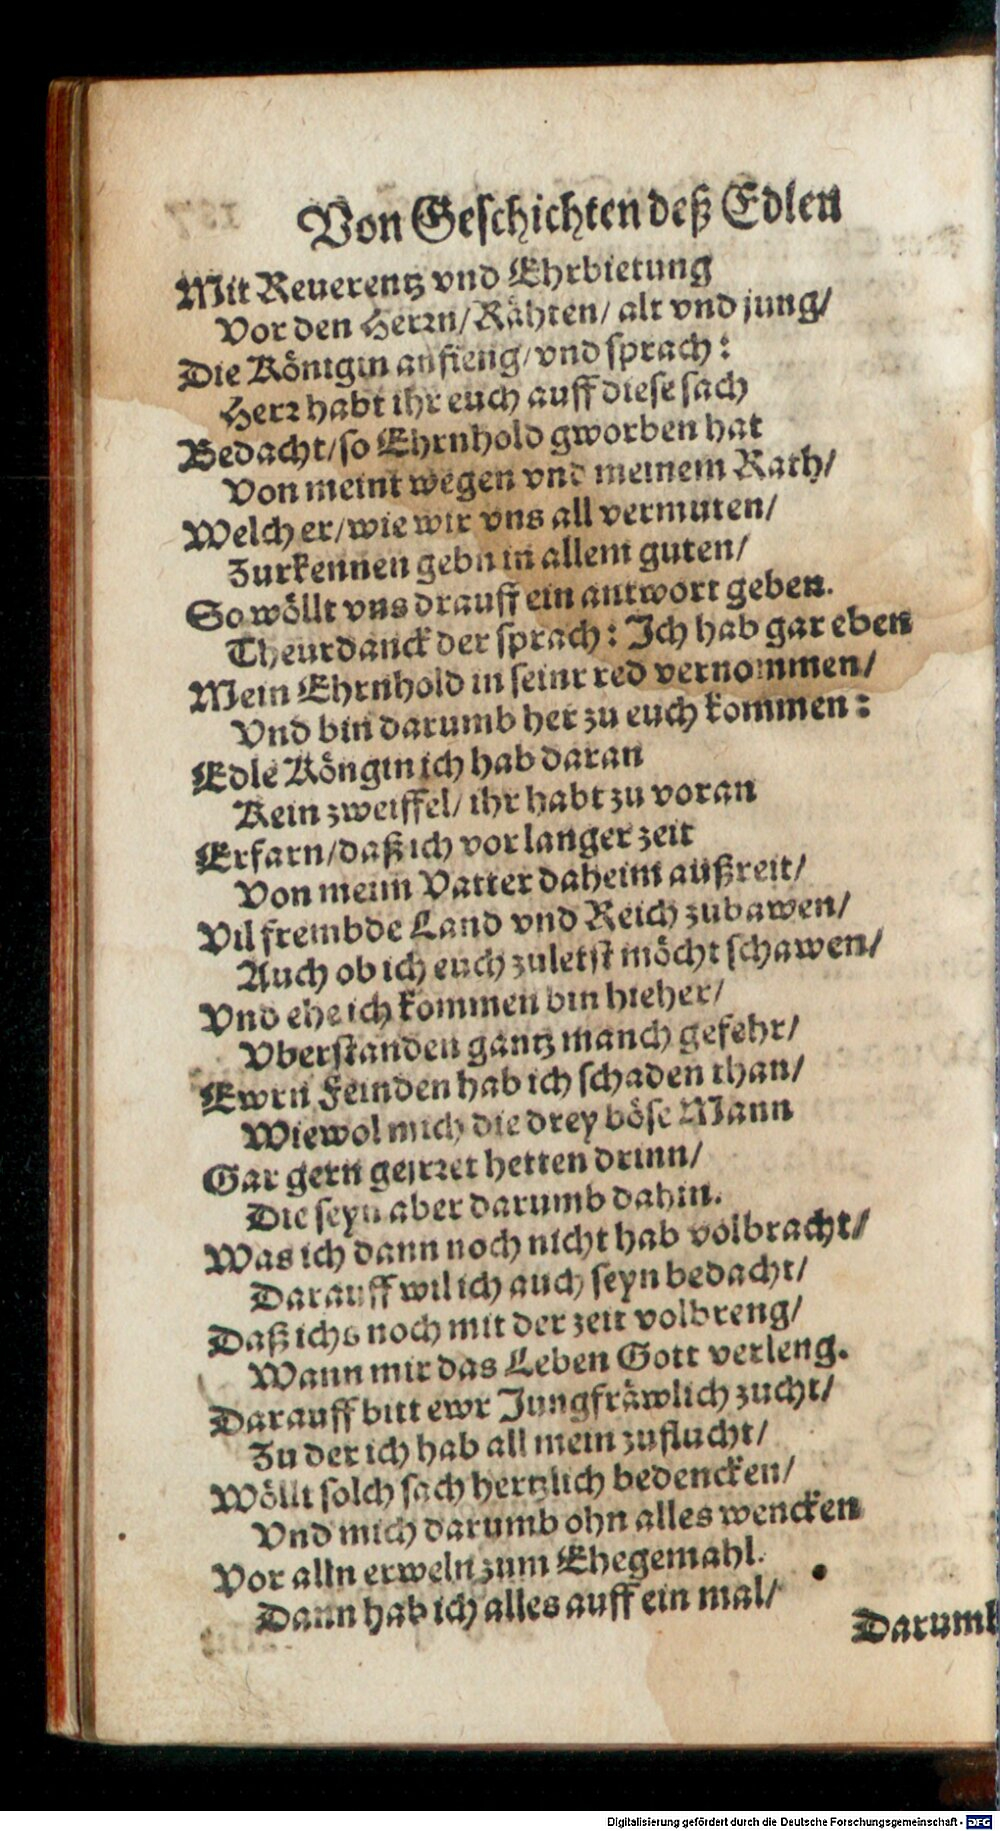 Von Geschichten deß Edlen
Mit Reuerentz vnd Ehrbietung
Vor den Herrn/ Rähten/ alt vnd jung/
Die Königin anfieng/ vnd sprach:
Herr habt ihr euch auff diese sach
Bedacht/ so Ehrnhold gworben hat
Von meint wegen vnd meinem Rath/
Welch er/ wie wir vns all vermuten/
Zurkennen gebn in allem guten/
So wöllt vns drauff ein antwort geben.
Theurdanck der sprach: Ich hab gar eben
Mein Ehrnhold in seinr red vernommen/
Vnd bin darumb her zu euch kommen:
Edle Köngin ich hab daran
Kein zweiffel/ ihr habt zu voran
Erfarn/ daß ich vor langer zeit
Von meim Vatter daheim außreit/
Vil frembde Land vnd Reich zubawen/
Auch ob ich euch zuletst möcht schawen/
Vnd ehe ich kommen bin hieher/
Vberstanden gantz manch gefehr/
Ewrn Feinden hab ich schaden than/
Wiewol mich die drey böse Mann
Gar gern geirret hetten drinn/
Die seyn aber darumb dahin.
Was ich dann noch nicht hab volbracht/
Darauff wil ich auch seyn bedacht/
Daß ichs noch mit der zeit volbreng/
Wann mir das Leben Gott verleng.
Darauff bitt ewr Jungfräwlich zucht/
Zu der ich hab all mein zuflucht/
Wöllt solch sach hertzlich bedencken/
Vnd mich darumb ohn alles wencken
Vor alln erweln zum Ehegemahl.
Dann hab ich alles auff ein mal/
Darumb
Digitalisierung gefördert durch die Deutsche Forschungsgemeinschaft - DFG